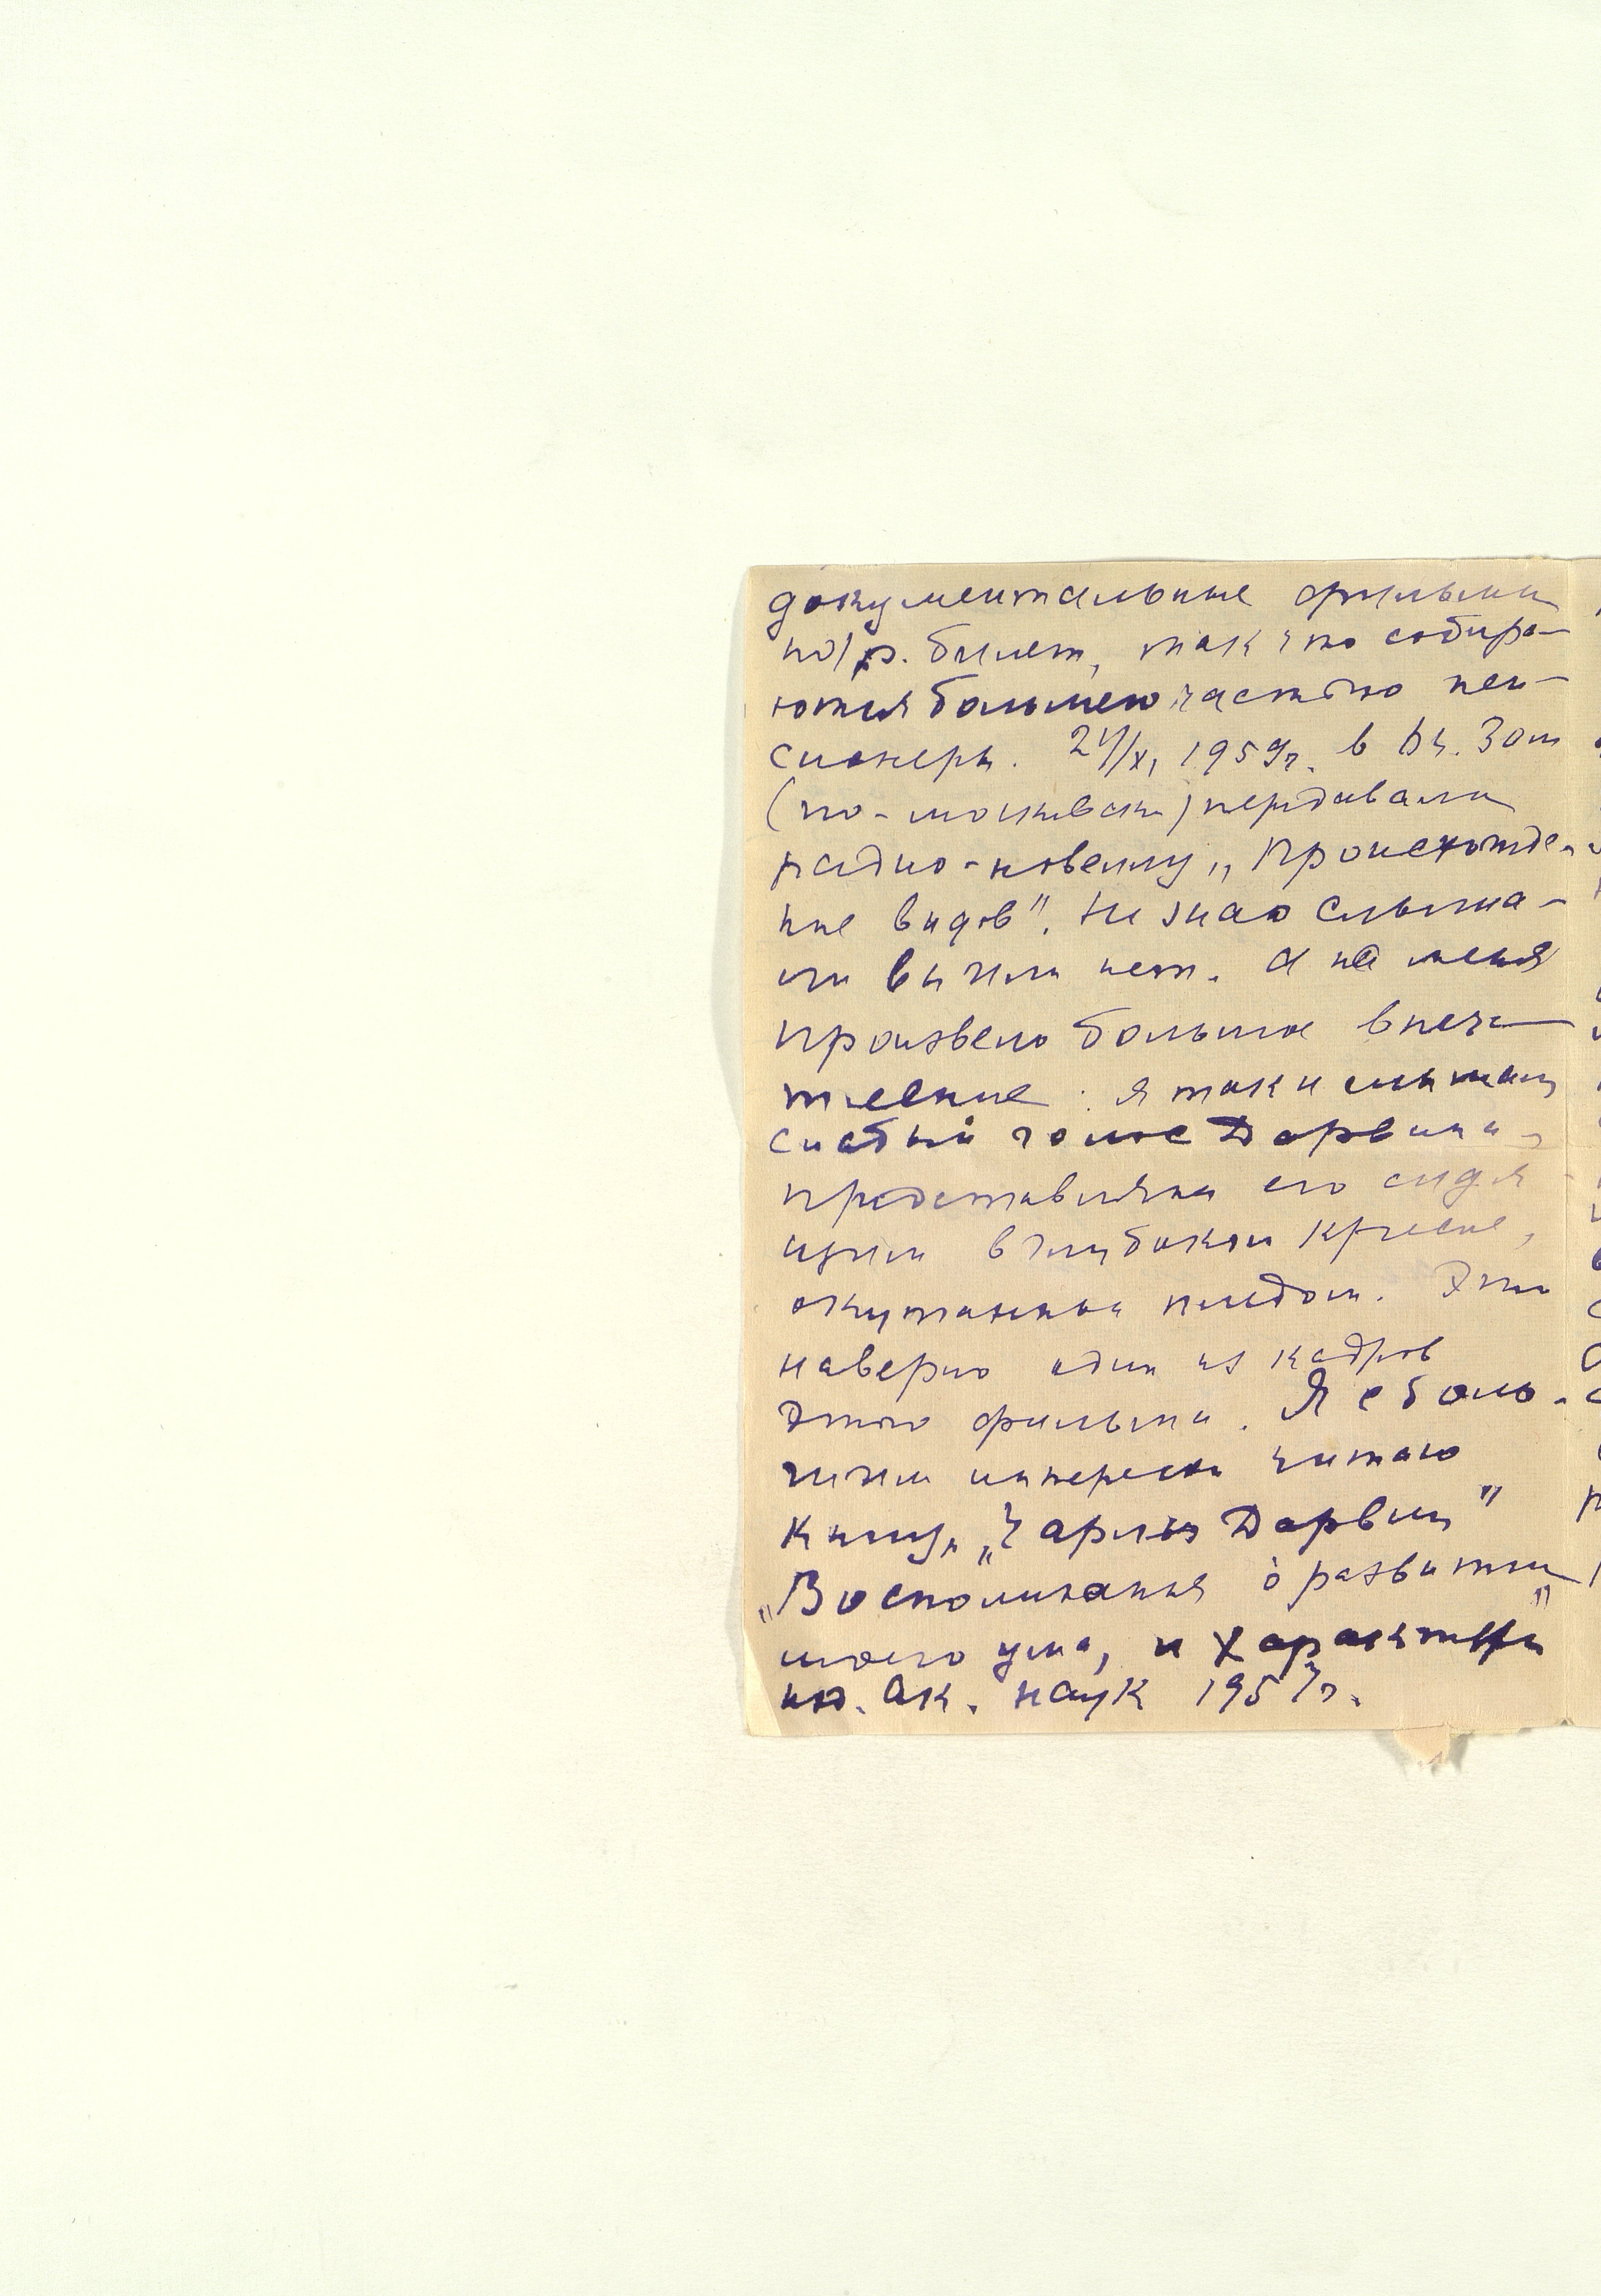 документальные фильмы
1 р. билет, так что собира-
ются большею частью пен-
сионеры. 24/XI 1959г. в 6ч. 30м
(по-московски) передавали
радио-новеллу „Происхожде-
ние видов". Не знаю слыша-
ли вы или нет. А на меня
произвело большое впеча-
тление: я так и слышала
слабый голос Дарвина,
представляла его сидя-
щим в глубоком кресле,
окутанным пледом. Это
наверно один из кадров
этого фильма. Я с боль-
шим интересом читаю
книгу „Чарльз Дарвин"
„Воспоминания о развитии
моего ума, и характера"
из. Ак. наук 1957г.